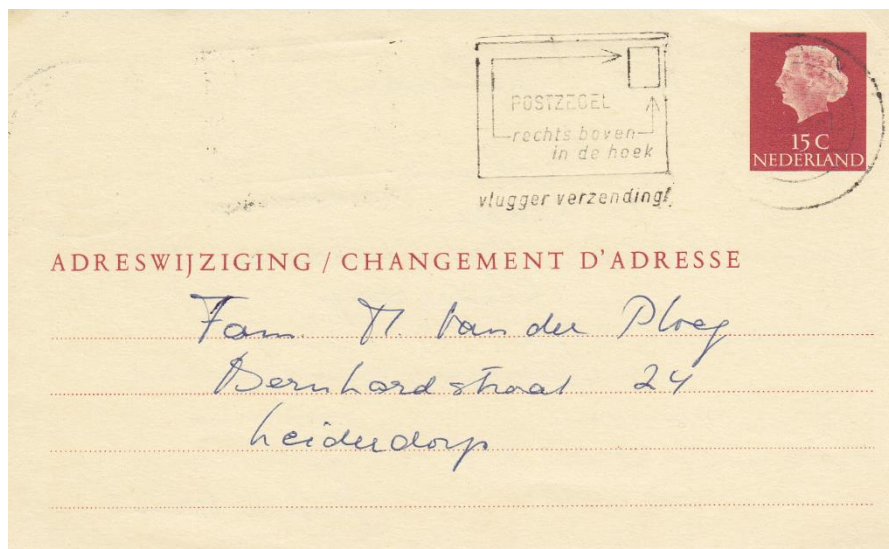 POSTZEGEL
rechts boven
in de hoek
vlugger verzending!
15 C
NEDERLAND
ADRESWIJZIGING / CHANGEMENT D'ADRESSE
Fam. M. van der Ploeg
Bernhardstraat 24
Leiderdorp